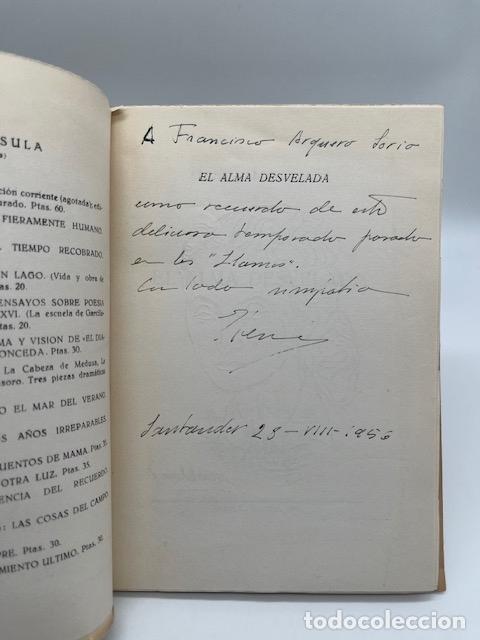 SULA
s)
ción corriente (agotada); edi-
urado. Ptas. 60.
FIERAMENTE HUMANO.
TIEMPO RECOBRADO.
N LAGO. (Vida y obra de
s. 20.
ENSAYOS SOBRE POESIA
XVI. (La escuela de Garcila-
Ptas. 20.
MA Y VISION DE «EL DIA-
ONCEDA. Ptas. 30.
La Cabeza de Medusa, La
soro. Tres piezas dramáticas
O EL MAR DEL VERANO.
S AÑOS IRREPARABLES.
UENTOS DE MAMA. Ptas. 35.
OTRA LUZ. Ptas. 35.
ENCIA DEL RECUERDO.
: LAS COSAS DEL CAMPO
PRE. Ptas. 30.
MIENTO ULTIMO. Ptas. 30
A Francisco Arquero Soria
EL ALMA DESVELADA
como recuerdo de esta
deliciosa temporada pasada
en las "Llamas".
Con toda simpatia
Santander 23-VIII-1956
todocoleccion
todocoleccion.net